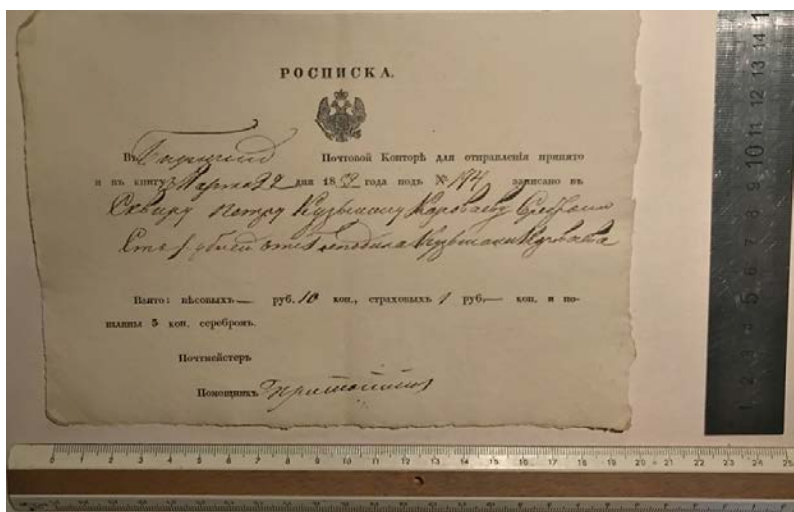 РОСПИСКА.
Въ Почтовой Конторѣ для отправленія принято
и въ книгу Марта 22 дня 18 года подъ № 194 записано въ
Сквиру Петру Кузьмичу Караваеву Серебромъ
Сто рублей отъ Кузьмича Караваева
Взято: вѣсовыхъ — руб. 10 коп., страховыхъ 1 руб. — коп. и по-
шлины 5 коп. серебромъ.
Почтмейстеръ
Помощникъ
1 2 3 4 5 6 7 8 9 10 11 12 13 14 1
0 1 2 3 4 5 6 7 8 9 10 11 12 13 14 15 16 17 18 19 20 21 22 23 24 25